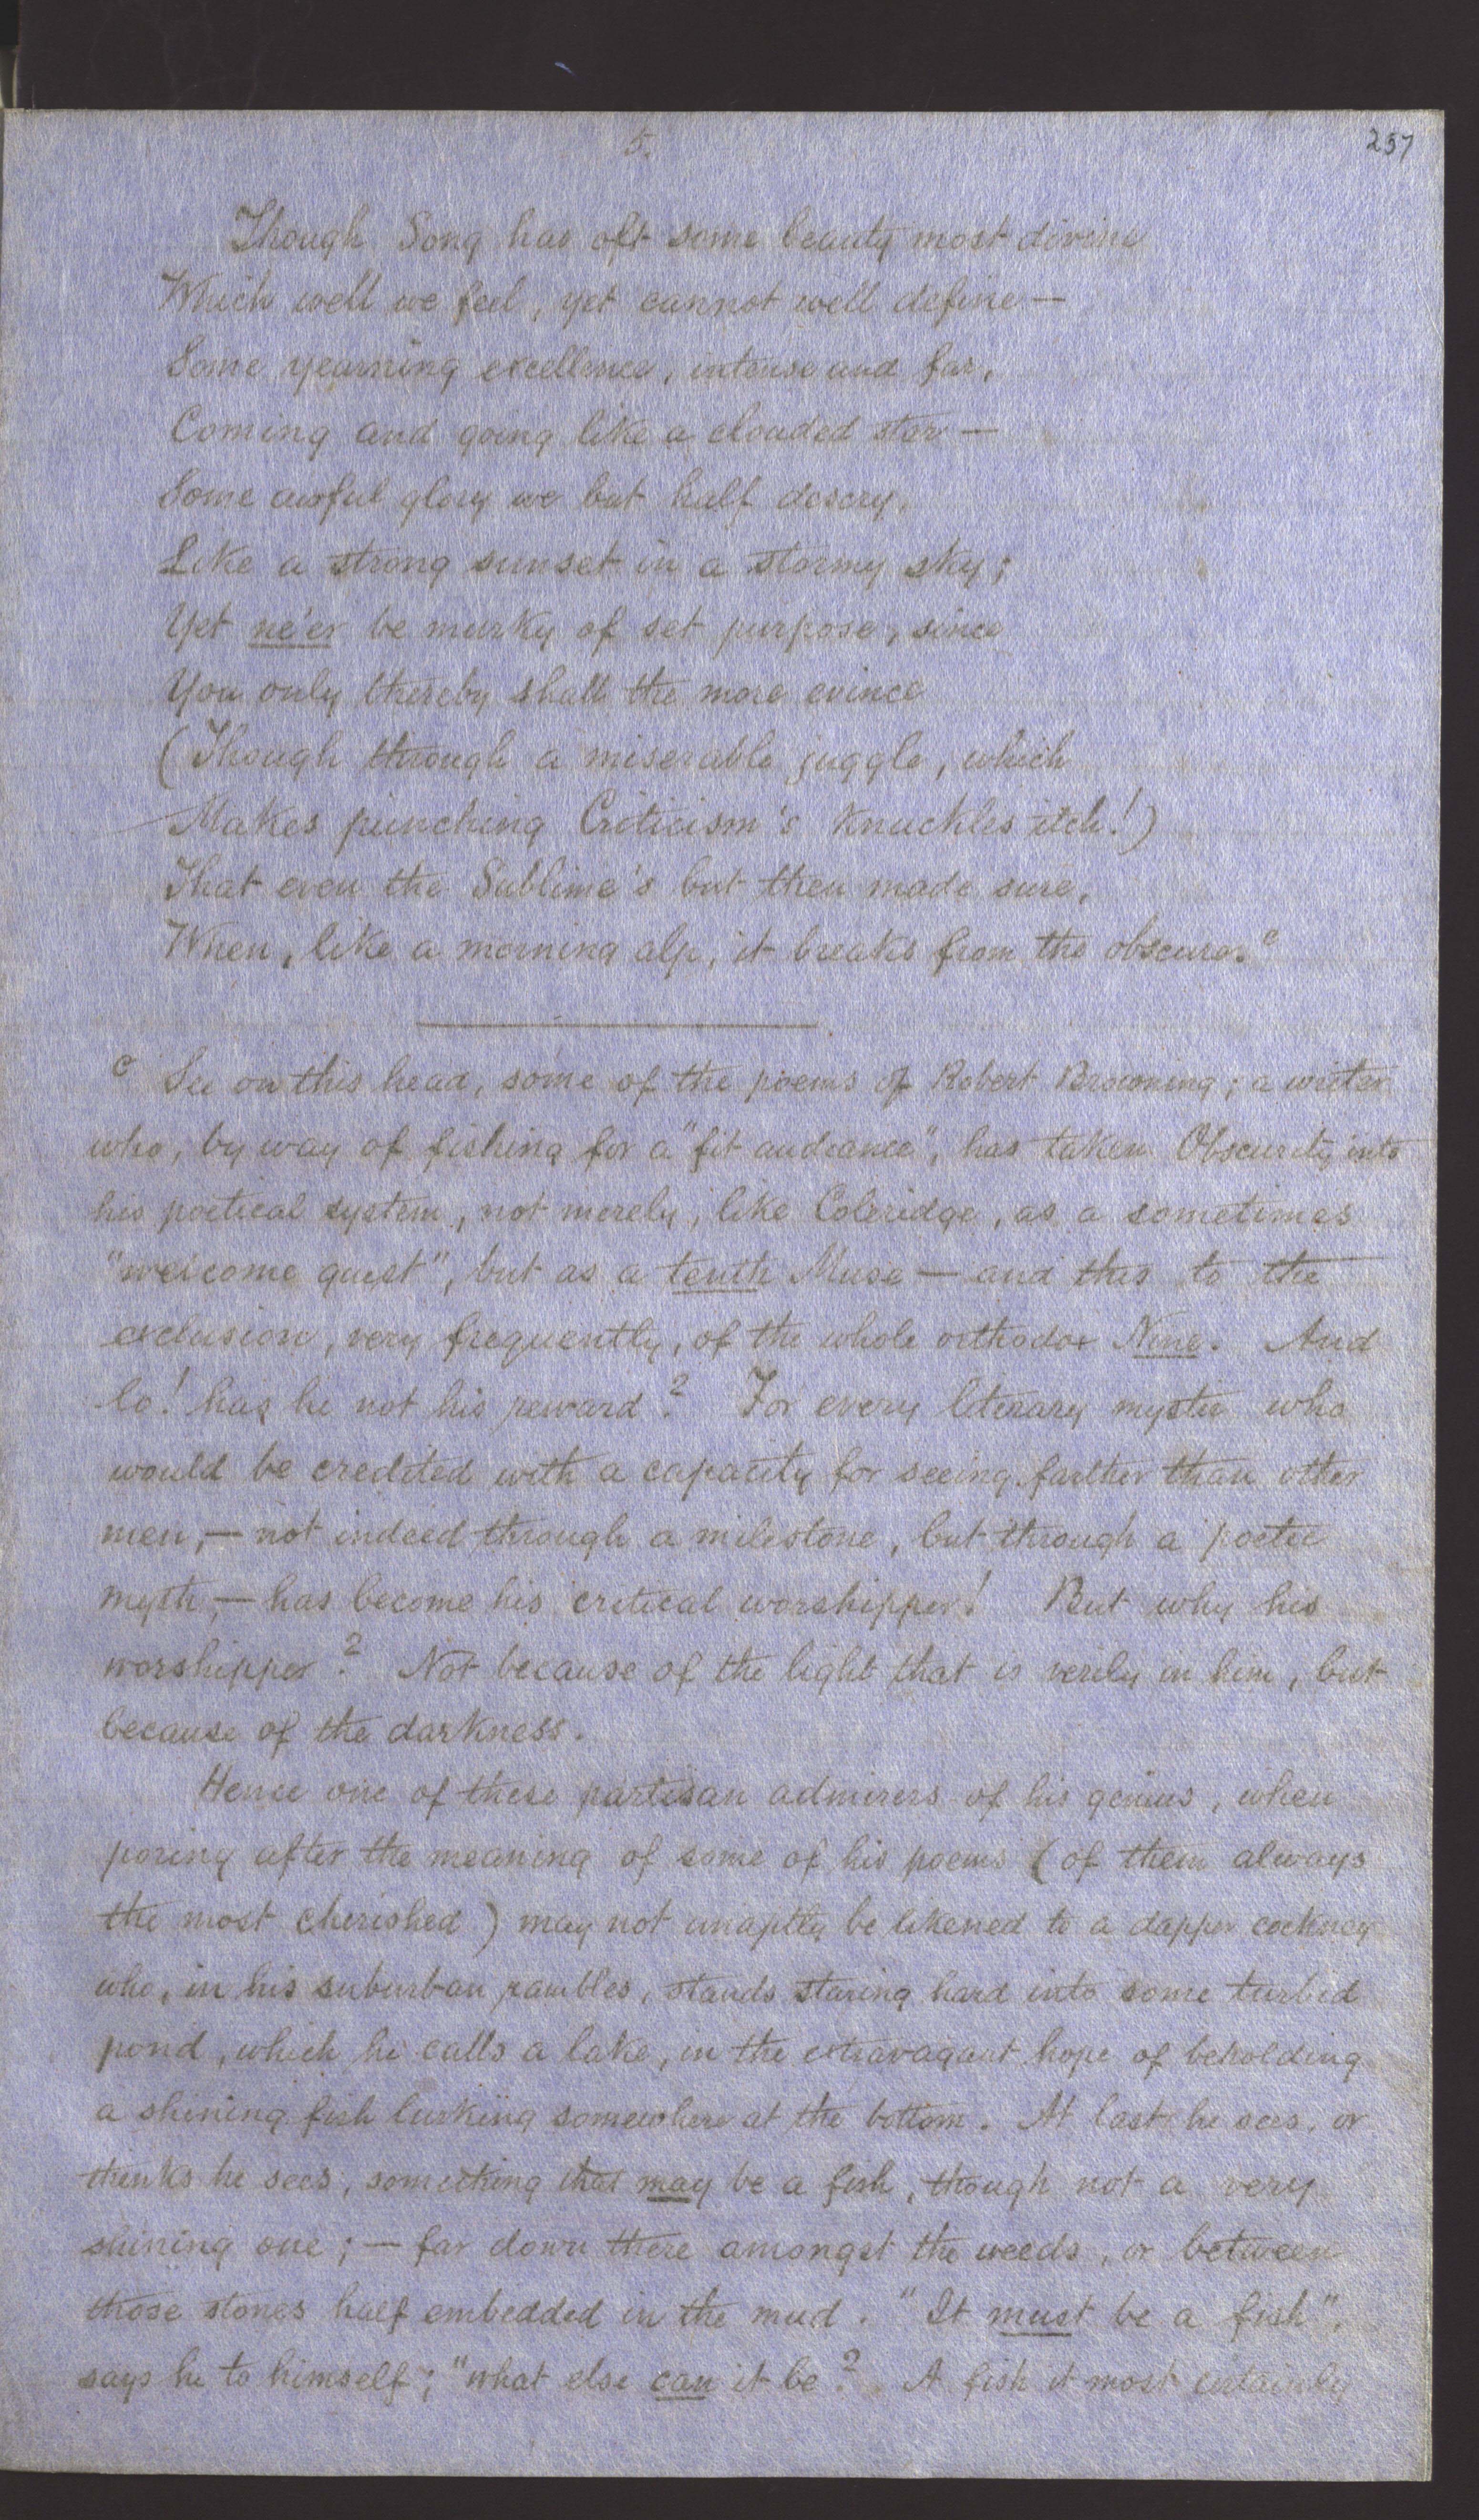 5.
257
Though Song has oft some beauty most divine
Which well we feel, yet cannot well define —
Some yearning excellence, intense and far,
Coming and going like a clouded star —
Some awful glory we but half descry,
Like a strong sunset in a stormy sky;
Yet ne'er be murky of set purpose, since
You only thereby shall the more evince
(Though through a miserable juggle, which
Makes punching Criticism's knuckles itch!)
That even the Sublime's but then made sure,
When, like a morning alp, it breaks from the obscure. c
c See on this head, some of the poems of Robert Browning; a writer
who, by way of fishing for a "fit audiance", has taken Obscurity into
his poetical system, not merely, like Coleridge, as a sometimes
"welcome guest", but as a tenth Muse — and this to the
exclusion, very frequently, of the whole orthodox Nine. And
lo! has he not his reward? For every literary mystic who
would be credited with a capacity for seeing farther than other
men, — not indeed through a milestone, but through a poetic
myth, — has become his critical worshipper! But why his
worshipper? Not because of the light that is verily in him, but
because of the darkness.
Hence one of these partisan admirers of his genius, when
poring after the meaning of some of his poems (of them always
the most cherished) may not unaptly be likened to a dapper cockney
who, in his suburban rambles, stands staring hard into some turbid
pond, which he calls a lake, in the extravagant hope of beholding
a shining fish lurking somewhere at the bottom. At last he sees, or
thinks he sees, something that may be a fish, though not a very
shining one; — far down there amongst the weeds, or between
those stones half embedded in the mud. "It must be a fish",
says he to himself; "what else can it be? A fish it most certainly